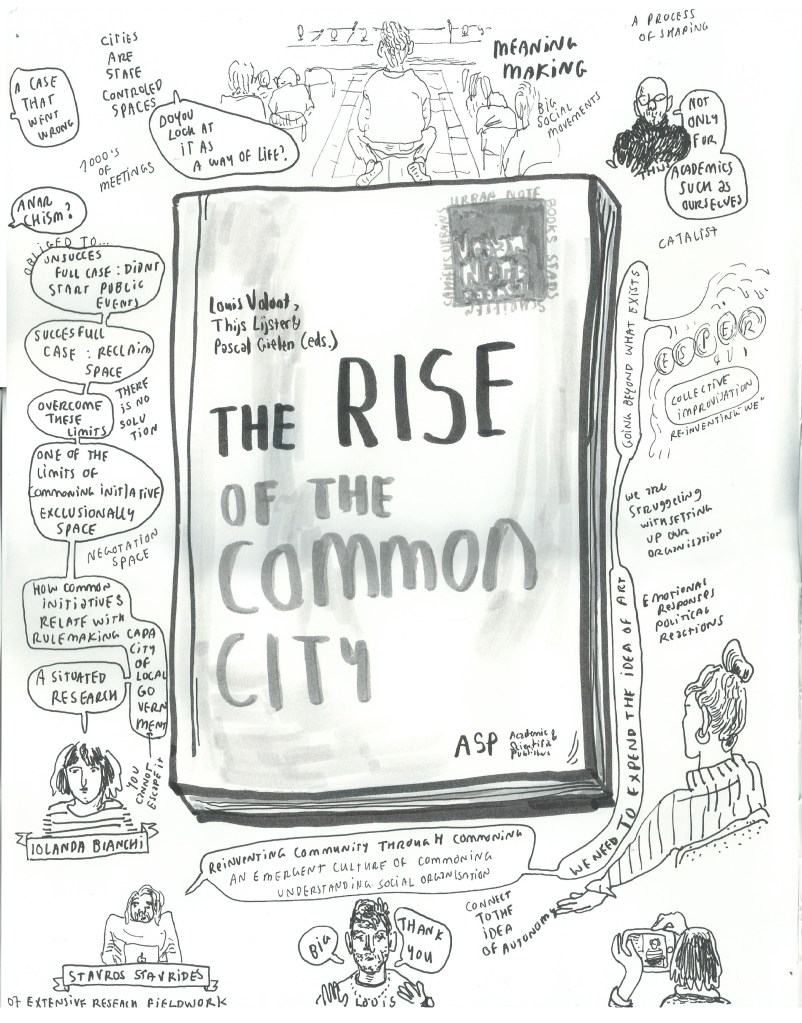 CITIES
ARE
STATE
CONTROLED
SPACES
A CASE
THAT
WENT
WRONG
DO YOU
LOOK AT
IT AS
A WAY OF LIFE?
1000'S
OF
MEETINGS
ANAR
CHISM?
MEANING
MAKING
BIG
SOCIAL
MOVEMENTS
A PROCESS
OF SHAPING
NOT
ONLY
FUR
ACADEMICS
SUCH AS
OURSELVES
THIJS
CATALIST
OBLIGED TO...
UNSUCCES
FULL CASE: DIDNT
START PUBLIC
EVENTS
SUCCESFULL
CASE: RECLAIM
SPACE
OVERCOME
THESE
LIMITS
THERE
IS NO
SOLU
TION
ONE OF THE
LIMITS OF
COMMONING INITIATIVE
EXCLUSIONALLY
SPACE
NEGOTATION
SPACE
HOW COMMON
INITIATIVES
RELATE WITH
RULEMAKING
CAPA
CITY
OF
LOCAL
GO
VERN
MENT
A SITUATED
RESEARCH
YOU
CANNOT
ESCAPE IT
IOLANDA BIANCHI
URBAN NOTE
BOOKS
Louis Volont,
Thijs Lijster &
Pascal Gielen (eds.)
THE RISE
OF THE
COMMON
CITY
ASP
Academic &
Scientific
Publishers
GOING BEYOND WHAT EXISTS
ESPER
COLLECTIVE
IMPROVISATION
RE-INVENTING "WE"
WE ARE
STRUGGELING
WITH SETTING
UP OUR
ORGANISATION
EMOTIONAL
RESPONSES
POLITICAL
REACTIONS
WE NEED TO EXPEND THE IDEA OF ART
REINVENTING COMMUNITY THROUGH COMMONING
AN EMERGENT CULTURE OF COMMONING
UNDERSTANDING SOCIAL ORGANISATION
CONNECT
TO THE
IDEA
OF AUTONOMY
STAVROS STAVRIDES
OF EXTENSIVE RESEACH FIELDWORK
BIG
THANK
YOU
LOUIS